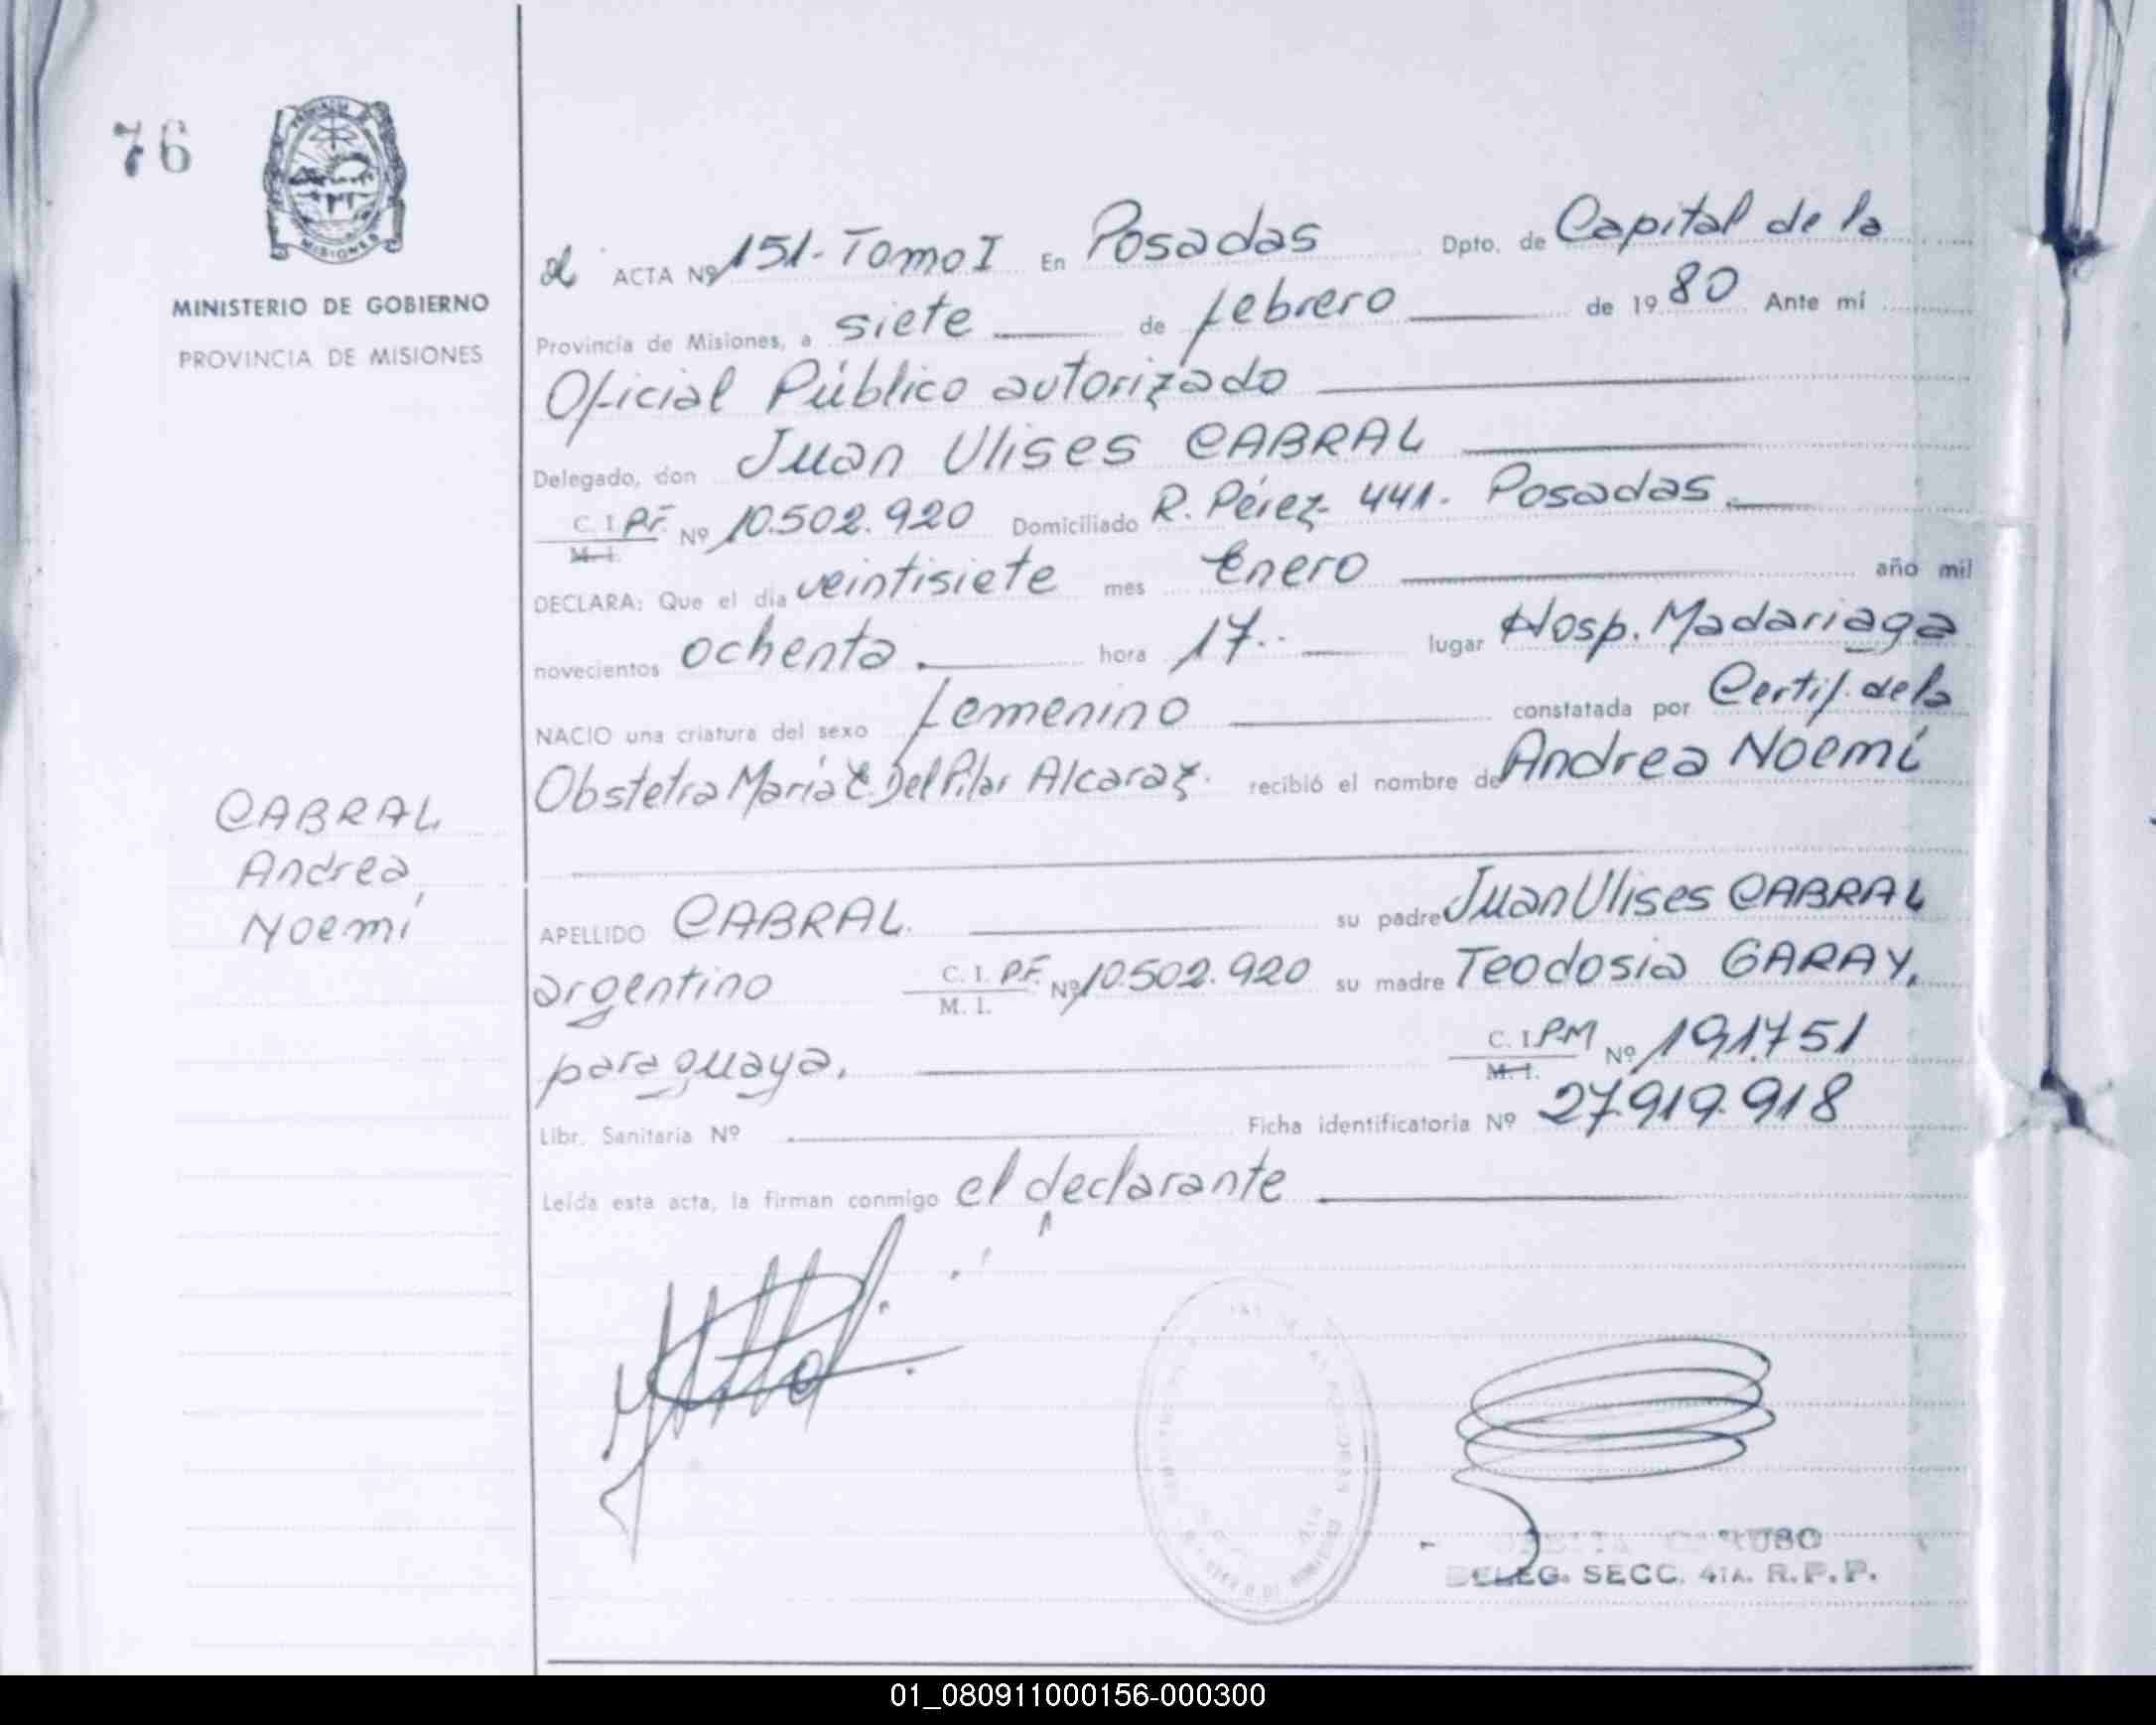 76
MISIONES
MINISTERIO DE GOBIERNO
PROVINCIA DE MISIONES
ACTA Nº 151-Tomo I En Posadas Dpto. de Capital de la
Provincia de Misiones, a siete de febrero de 1980 Ante mí
Oficial Público autorizado
Delegado, don Juan Ulises CABRAL
C. I. P.F. Nº 10.502.920 Domiciliado R. Pérez 441. Posadas.
M. I.
DECLARA: Que el día veintisiete mes Enero año mil
novecientos ochenta. hora 17.. lugar Hosp. Madariaga
NACIO una criatura del sexo femenino constatada por Certif. de la
Obstetra María E. Del Pilar Alcaraz. recibió el nombre de Andrea Noemí
CABRAL
Andrea
Noemí
APELLIDO CABRAL. su padre Juan Ulises CABRAL
argentino C. I. P.F. Nº 10.502.920 su madre Teodosia GARAY,
M. I.
paraguaya. C. I. PM Nº 191.751
M. I.
Libr. Sanitaria Nº Ficha identificatoria Nº 27.919.918
Leída esta acta, la firman conmigo el declarante
DELEG. SECC. 4TA. R.P.P.
01_080911000156-000300